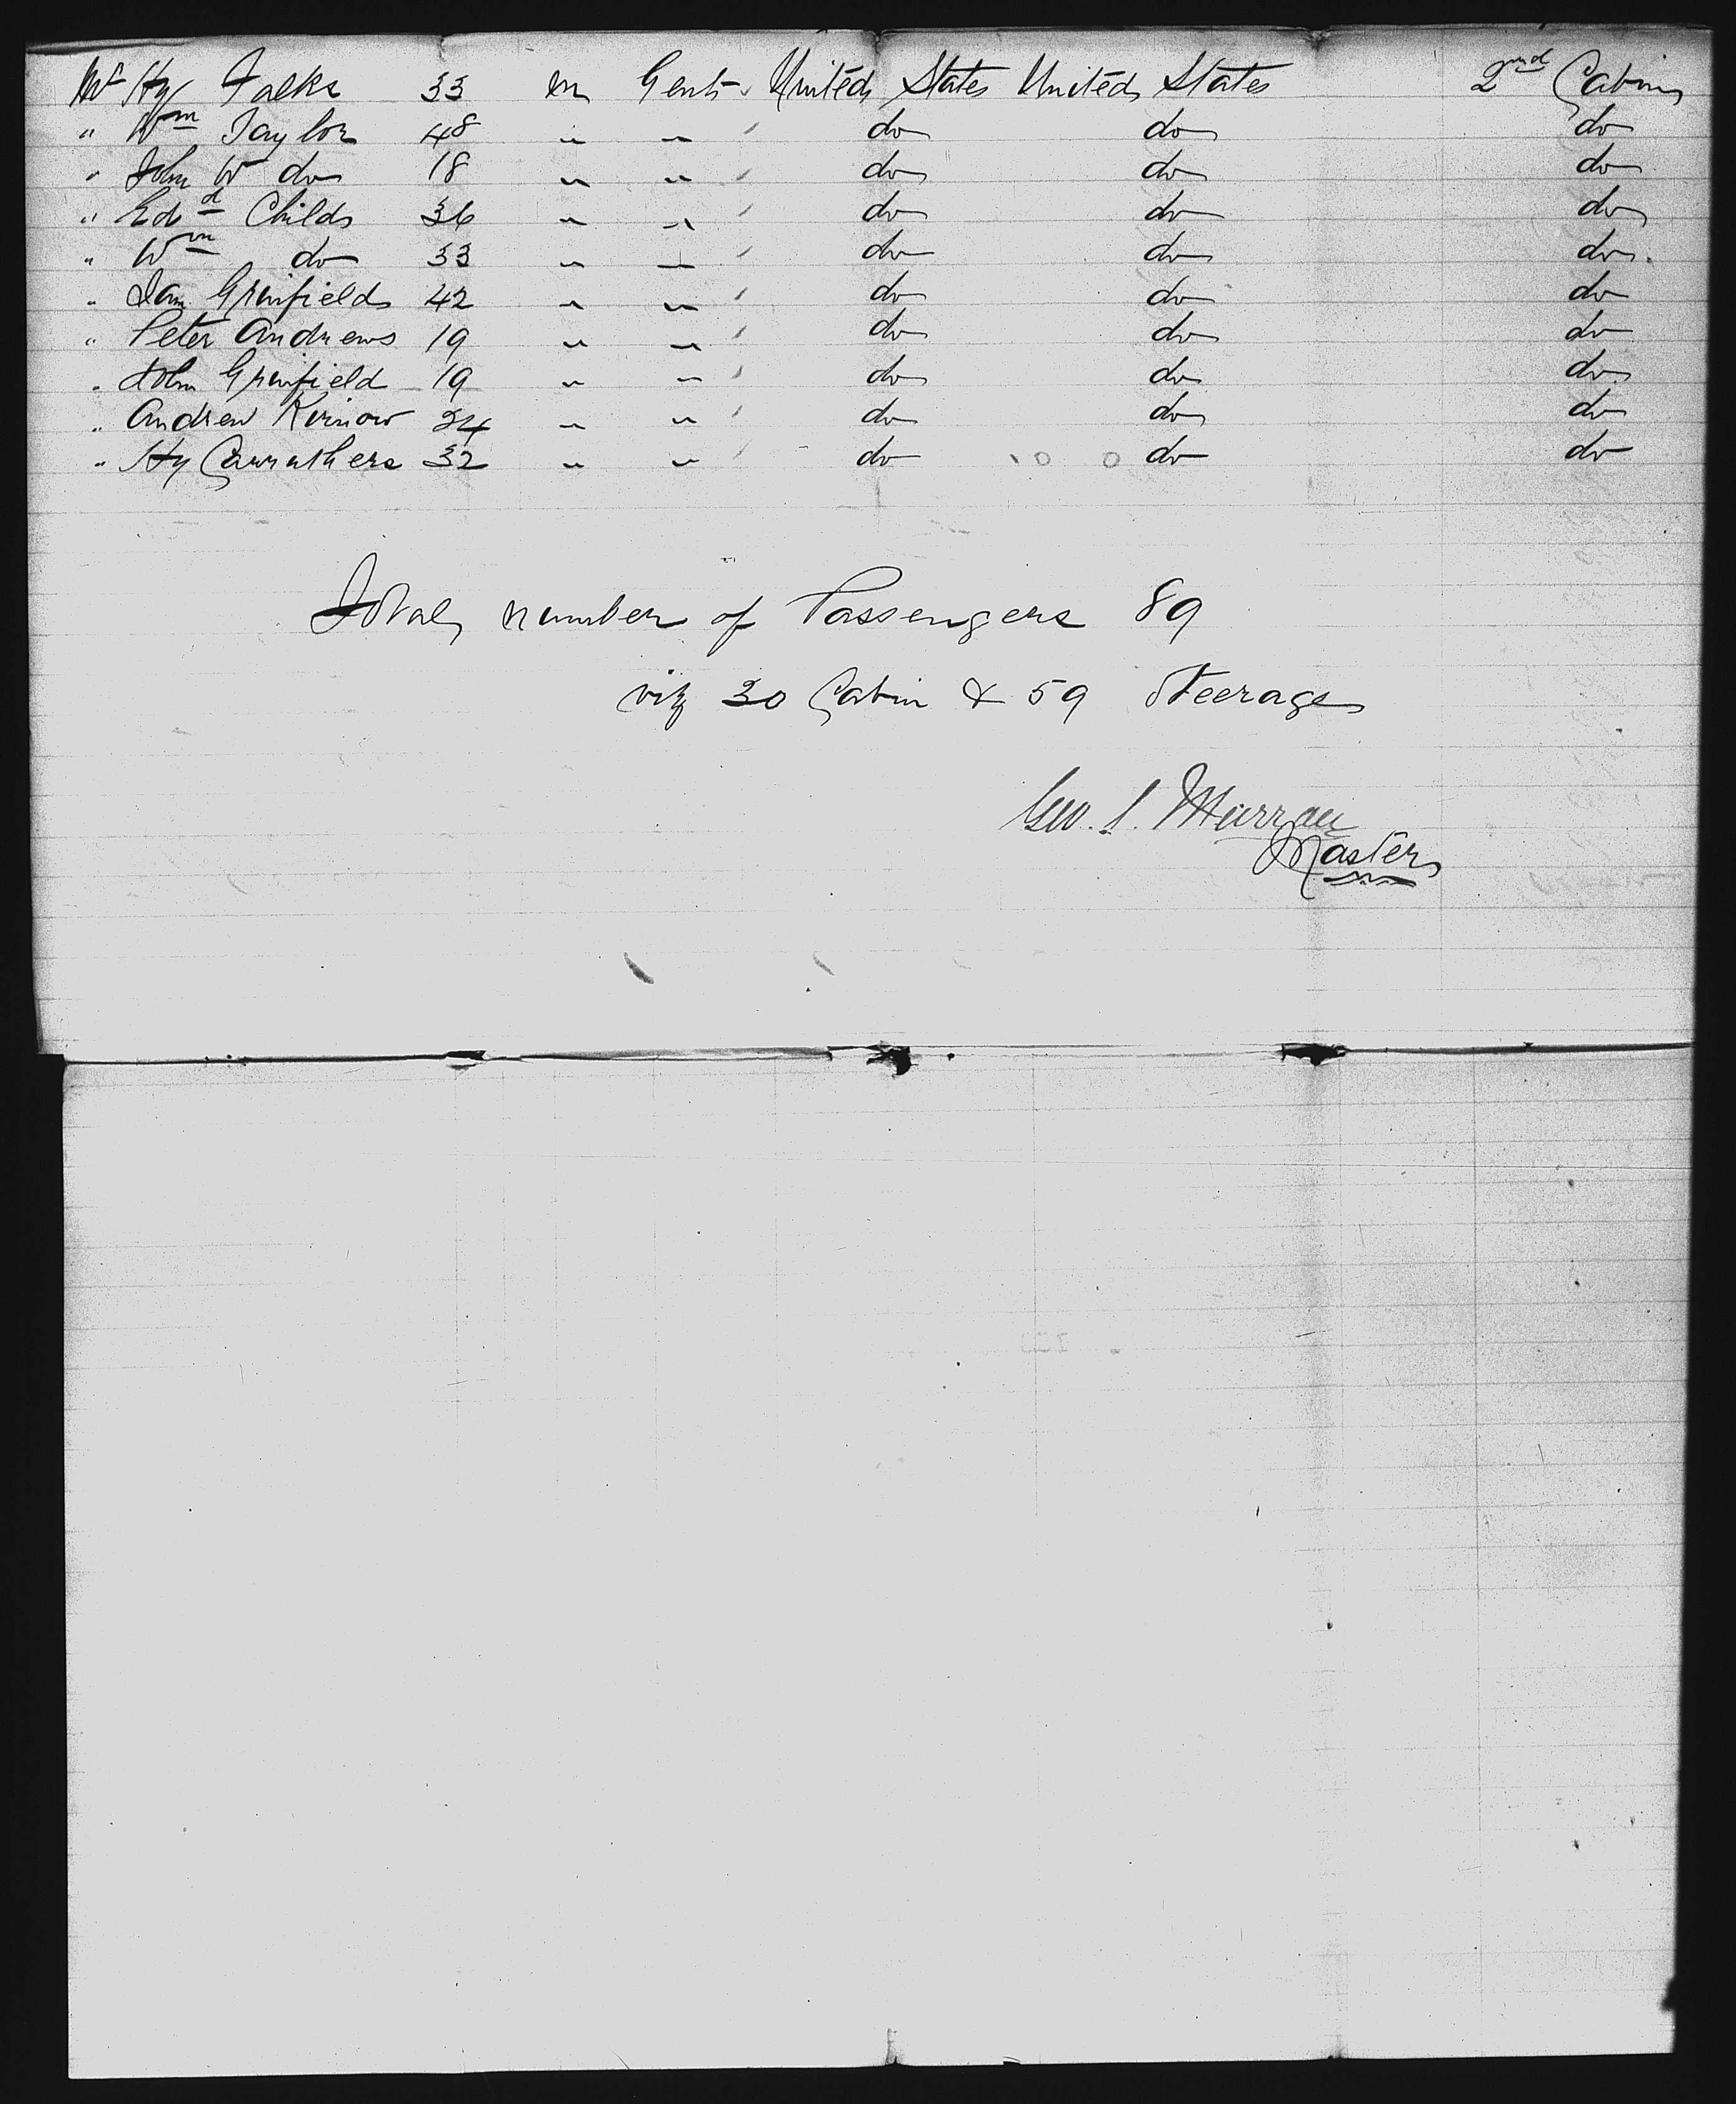 Mr Hy Falks 33 m Gent United States United States 2nd Cabin
" Wm Taylor 48 " " do do do
" John W do 18 " " do do do
" Edwd Childs 36 " " do do do
" Wm do 33 " " do do do
" Grinfield 42 " " do do do
" Peter Andrews 19 " " do do do
" John Grinfield 19 " " do do do
" Andrew 24 " " do do do
" Hy Carruthers 32 " " do do do
Total number of Passengers 89
viz 30 Cabin & 59 Steerage
Geo. S. Murray
Master